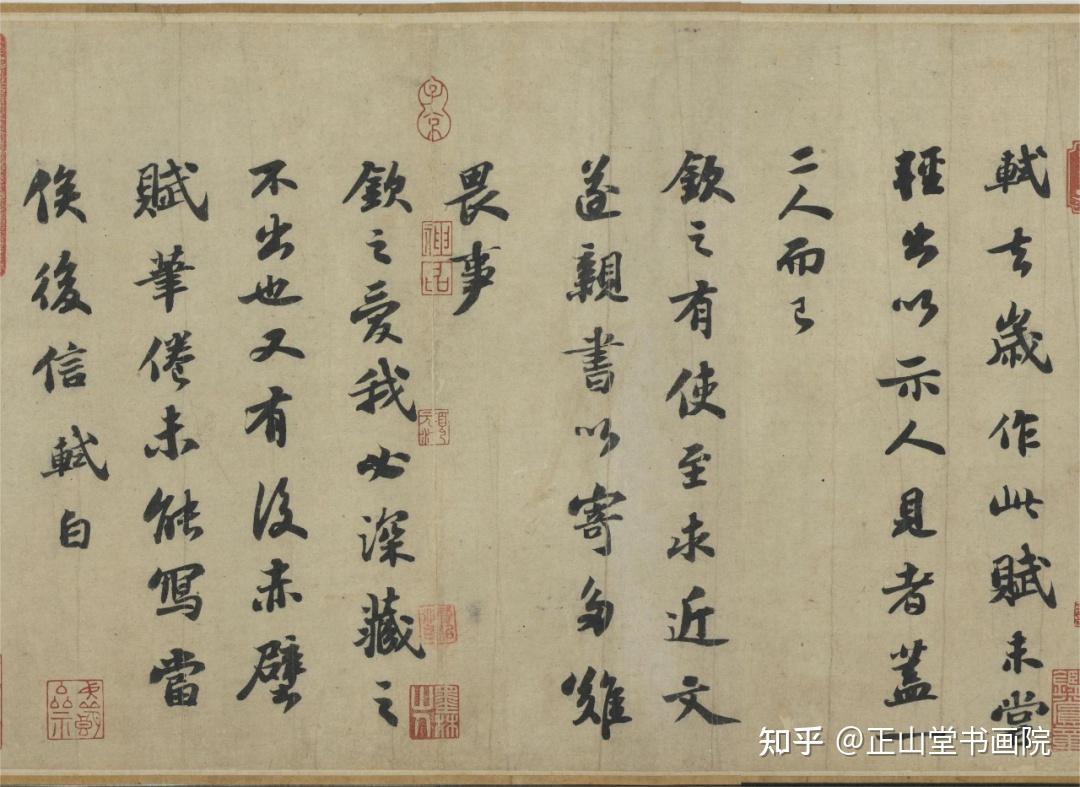 軾去歲作此賦未嘗
輕出以示人見者蓋一
二人而已
欽之有使至求近文
遂親書以寄多難
畏事
欽之愛我必深藏之
不出也又有後赤壁
賦筆倦未能寫當
俟後信軾白
子京
神品
墨林山人
知乎 @正山堂书画院